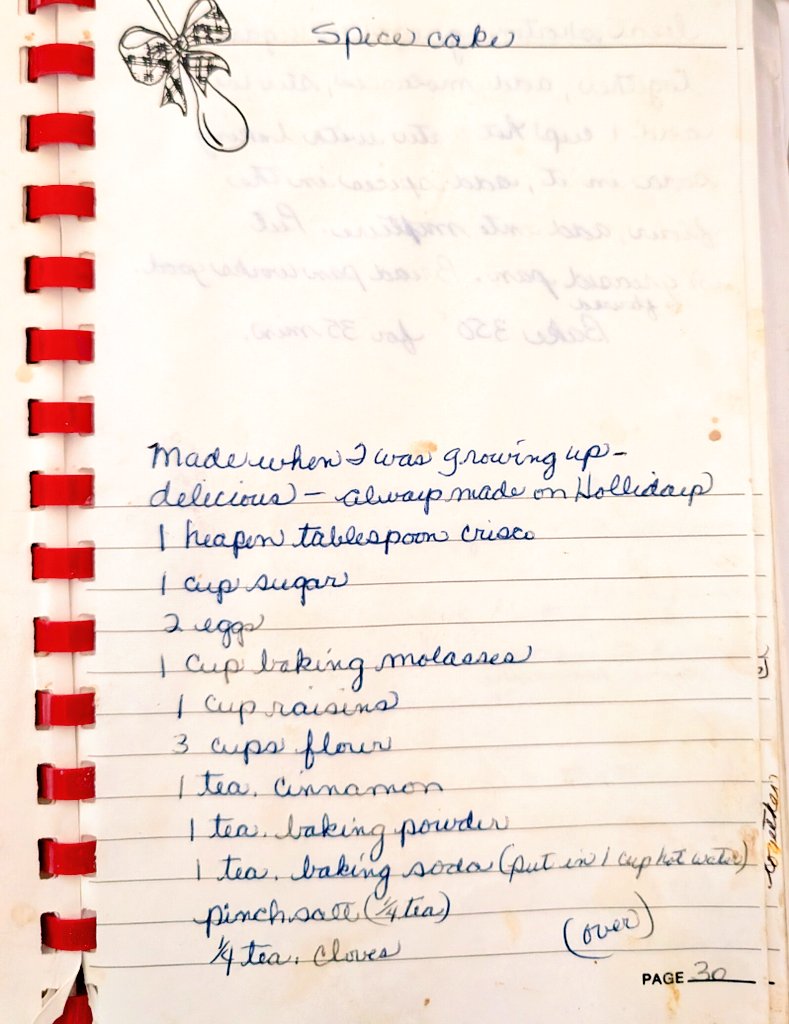 Spice cake
Made when I was growing up -
delicious - always made on Hollidays
1 heapen tablespoon crisco
1 cup sugar
2 eggs
1 cup baking molasses
1 cup raisins
3 cups flour
1 tea. cinnamon
1 tea. baking powder
1 tea. baking soda (put in 1 cup hot water)
pinch salt (1/4 tea)
1/4 tea. cloves
(over)
PAGE 30